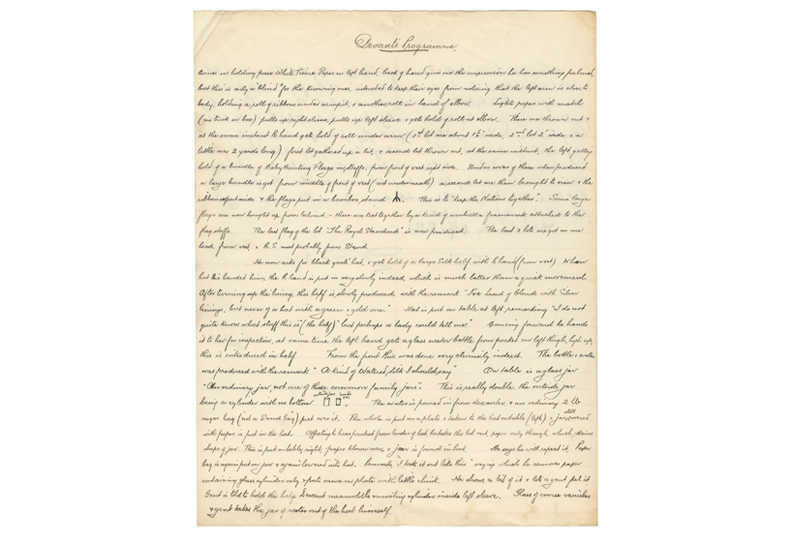 Devant's Programme.
Comes on holding piece White Tissue Paper in left hand, back of hand gives one the impression he has something palmed,
but this is only a "blind" for the knowing ones, intended to keep their eyes from noticing that the left arm is close to
body, holding a roll of ribbons under armpit, & another roll in bend of elbow. Lights paper with match
(no trick in box) pulls up right sleeve, pulls up left sleeve & gets hold of roll at elbow. These are thrown out &
at the same instant R hand gets hold of roll under arm (1st lot are about 1½ wide 2nd lot 2" wide & a
little over 2 yards long) first lot gathered up a bit, & second lot thrown out, at the same instant, the left
hold of a bundle of Flags in from front of vest right side. Under cover of these when produced
a large bundle is got from middle of front of vest (not underneath) a second lot are then brought to view & the
ribbons put aside & the flags put in a stand. This is to "keep the Nations together". Some large
flags are now brought up from behind - these are tied together by a kind of umbrella framework attached to the
flag staffs. The last flag of the lot "The Royal Standard" is now produced. The last 3 lots are got in one
load, from vest, & R.S. most probably from Stand.
He now asks for black gents hat, & gets hold of a large Silk hdkf with R hand (from vest) When
hat this handed him, the R hand is put in very slowly indeed which is much better than a quick movement.
After turning up the lining, this hdkf is slowly produced with the remark "I've heard of Clouds with Silver
linings, but never of a hat with a green & gold one" Hat is put on table at left remarking "I do not
quite know what stuff this is (the hdkf) but perhaps a lady could tell me." Coming forward he hands
it to her for inspection, at same time the left hand gets a glass water bottle from pocket on left thigh, high up,
this is introduced in hdkf From the front this was done very clumsily indeed. The bottle & water
was produced with the remark "A kind of Watered, silk I should say" On table is a glass jar
"An ordinary jar, not one of those common family jars". This is really double, the outside jar
being a cylinder with no bottom The water is poured in from decanter & an ordinary 2 lb
sugar bag (not a Sand bag) put over it. The whole is put on a plate & taken to the hat on table (left) & jar covered
with paper is put in the hat. bag out, paper only though, which retains
shape of jar. This is put on table, right, paper blown over, & jar is found in hat. He says he will repeat it, Paper
bag is again put on jar & again lowered into hat. Remarks "I took it out like this" saying which he removes paper
containing glass cylinder only & puts same on plate with little chink. He shows a bit of it & lets a gent feel it
Gent is told to hold the help Devant meanwhile cylinder inside left sleeve. Glass of course vanishes
& gent takes the jar of water out of the hat himself.